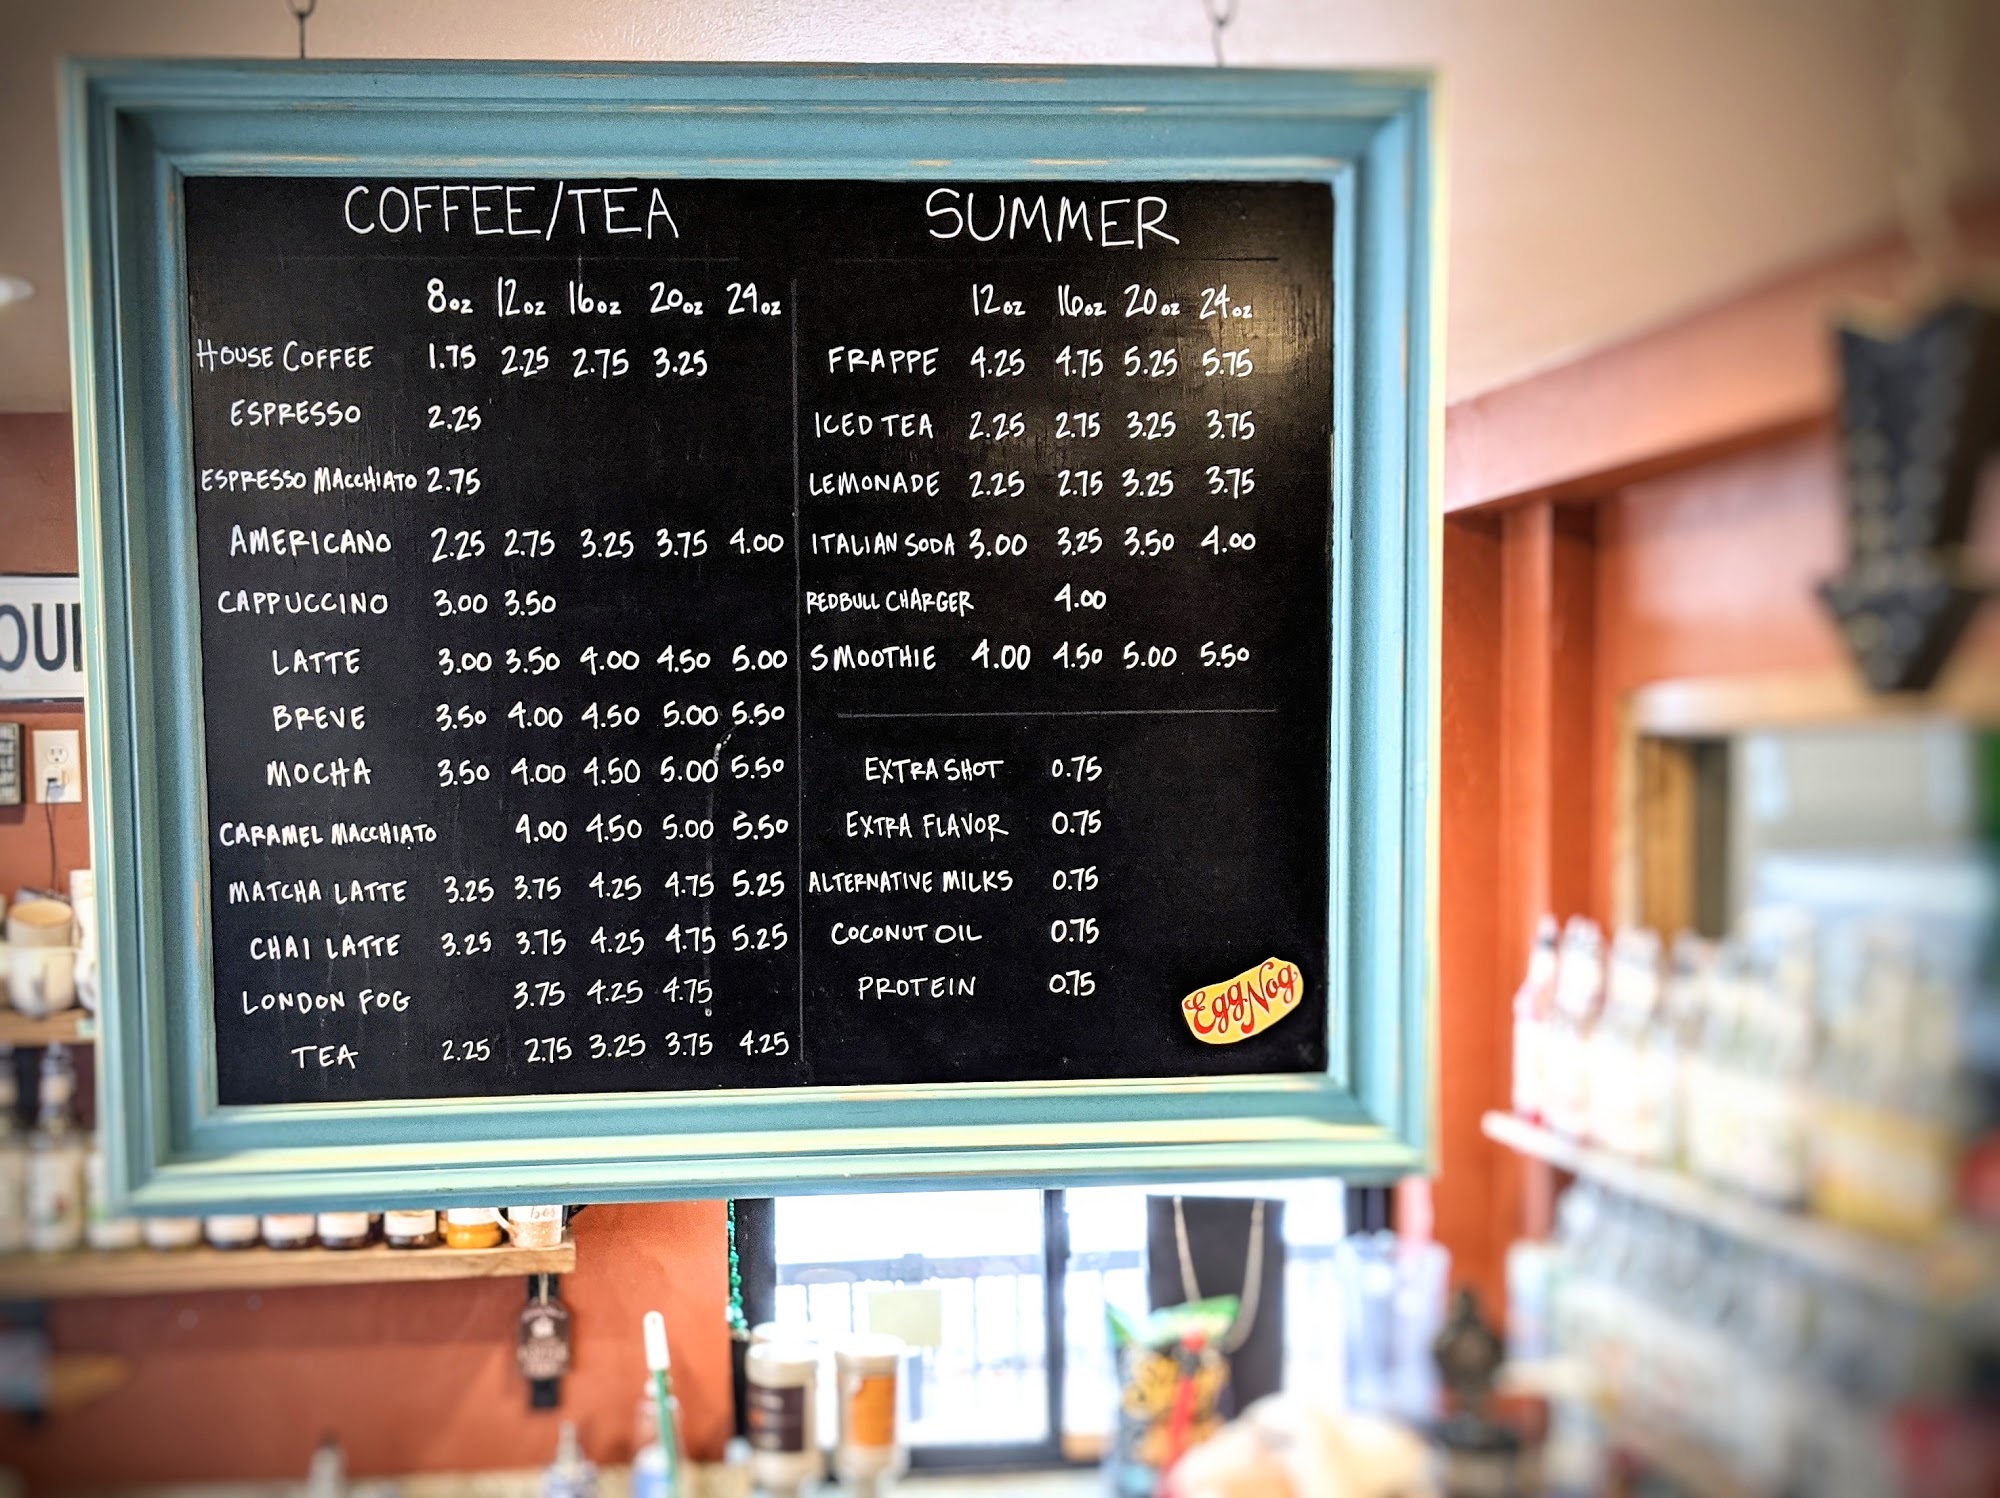 COFFEE/TEA
8oz 12oz 16oz 20oz 24oz
HOUSE COFFEE 1.75 2.25 2.75 3.25
ESPRESSO 2.25
ESPRESSO MACCHIATO 2.75
AMERICANO 2.25 2.75 3.25 3.75 4.00
CAPPUCCINO 3.00 3.50
LATTE 3.00 3.50 4.00 4.50 5.00
BREVE 3.50 4.00 4.50 5.00 5.50
MOCHA 3.50 4.00 4.50 5.00 5.50
CARAMEL MACCHIATO 4.00 4.50 5.00 5.50
MATCHA LATTE 3.25 3.75 4.25 4.75 5.25
CHAI LATTE 3.25 3.75 4.25 4.75 5.25
LONDON FOG 3.75 4.25 4.75
TEA 2.25 2.75 3.25 3.75 4.25
SUMMER
12oz 16oz 20oz 24oz
FRAPPE 4.25 4.75 5.25 5.75
ICED TEA 2.25 2.75 3.25 3.75
LEMONADE 2.25 2.75 3.25 3.75
ITALIAN SODA 3.00 3.25 3.50 4.00
REDBULL CHARGER 4.00
SMOOTHIE 4.00 4.50 5.00 5.50
EXTRA SHOT 0.75
EXTRA FLAVOR 0.75
ALTERNATIVE MILKS 0.75
COCONUT OIL 0.75
PROTEIN 0.75
EggNog
OU